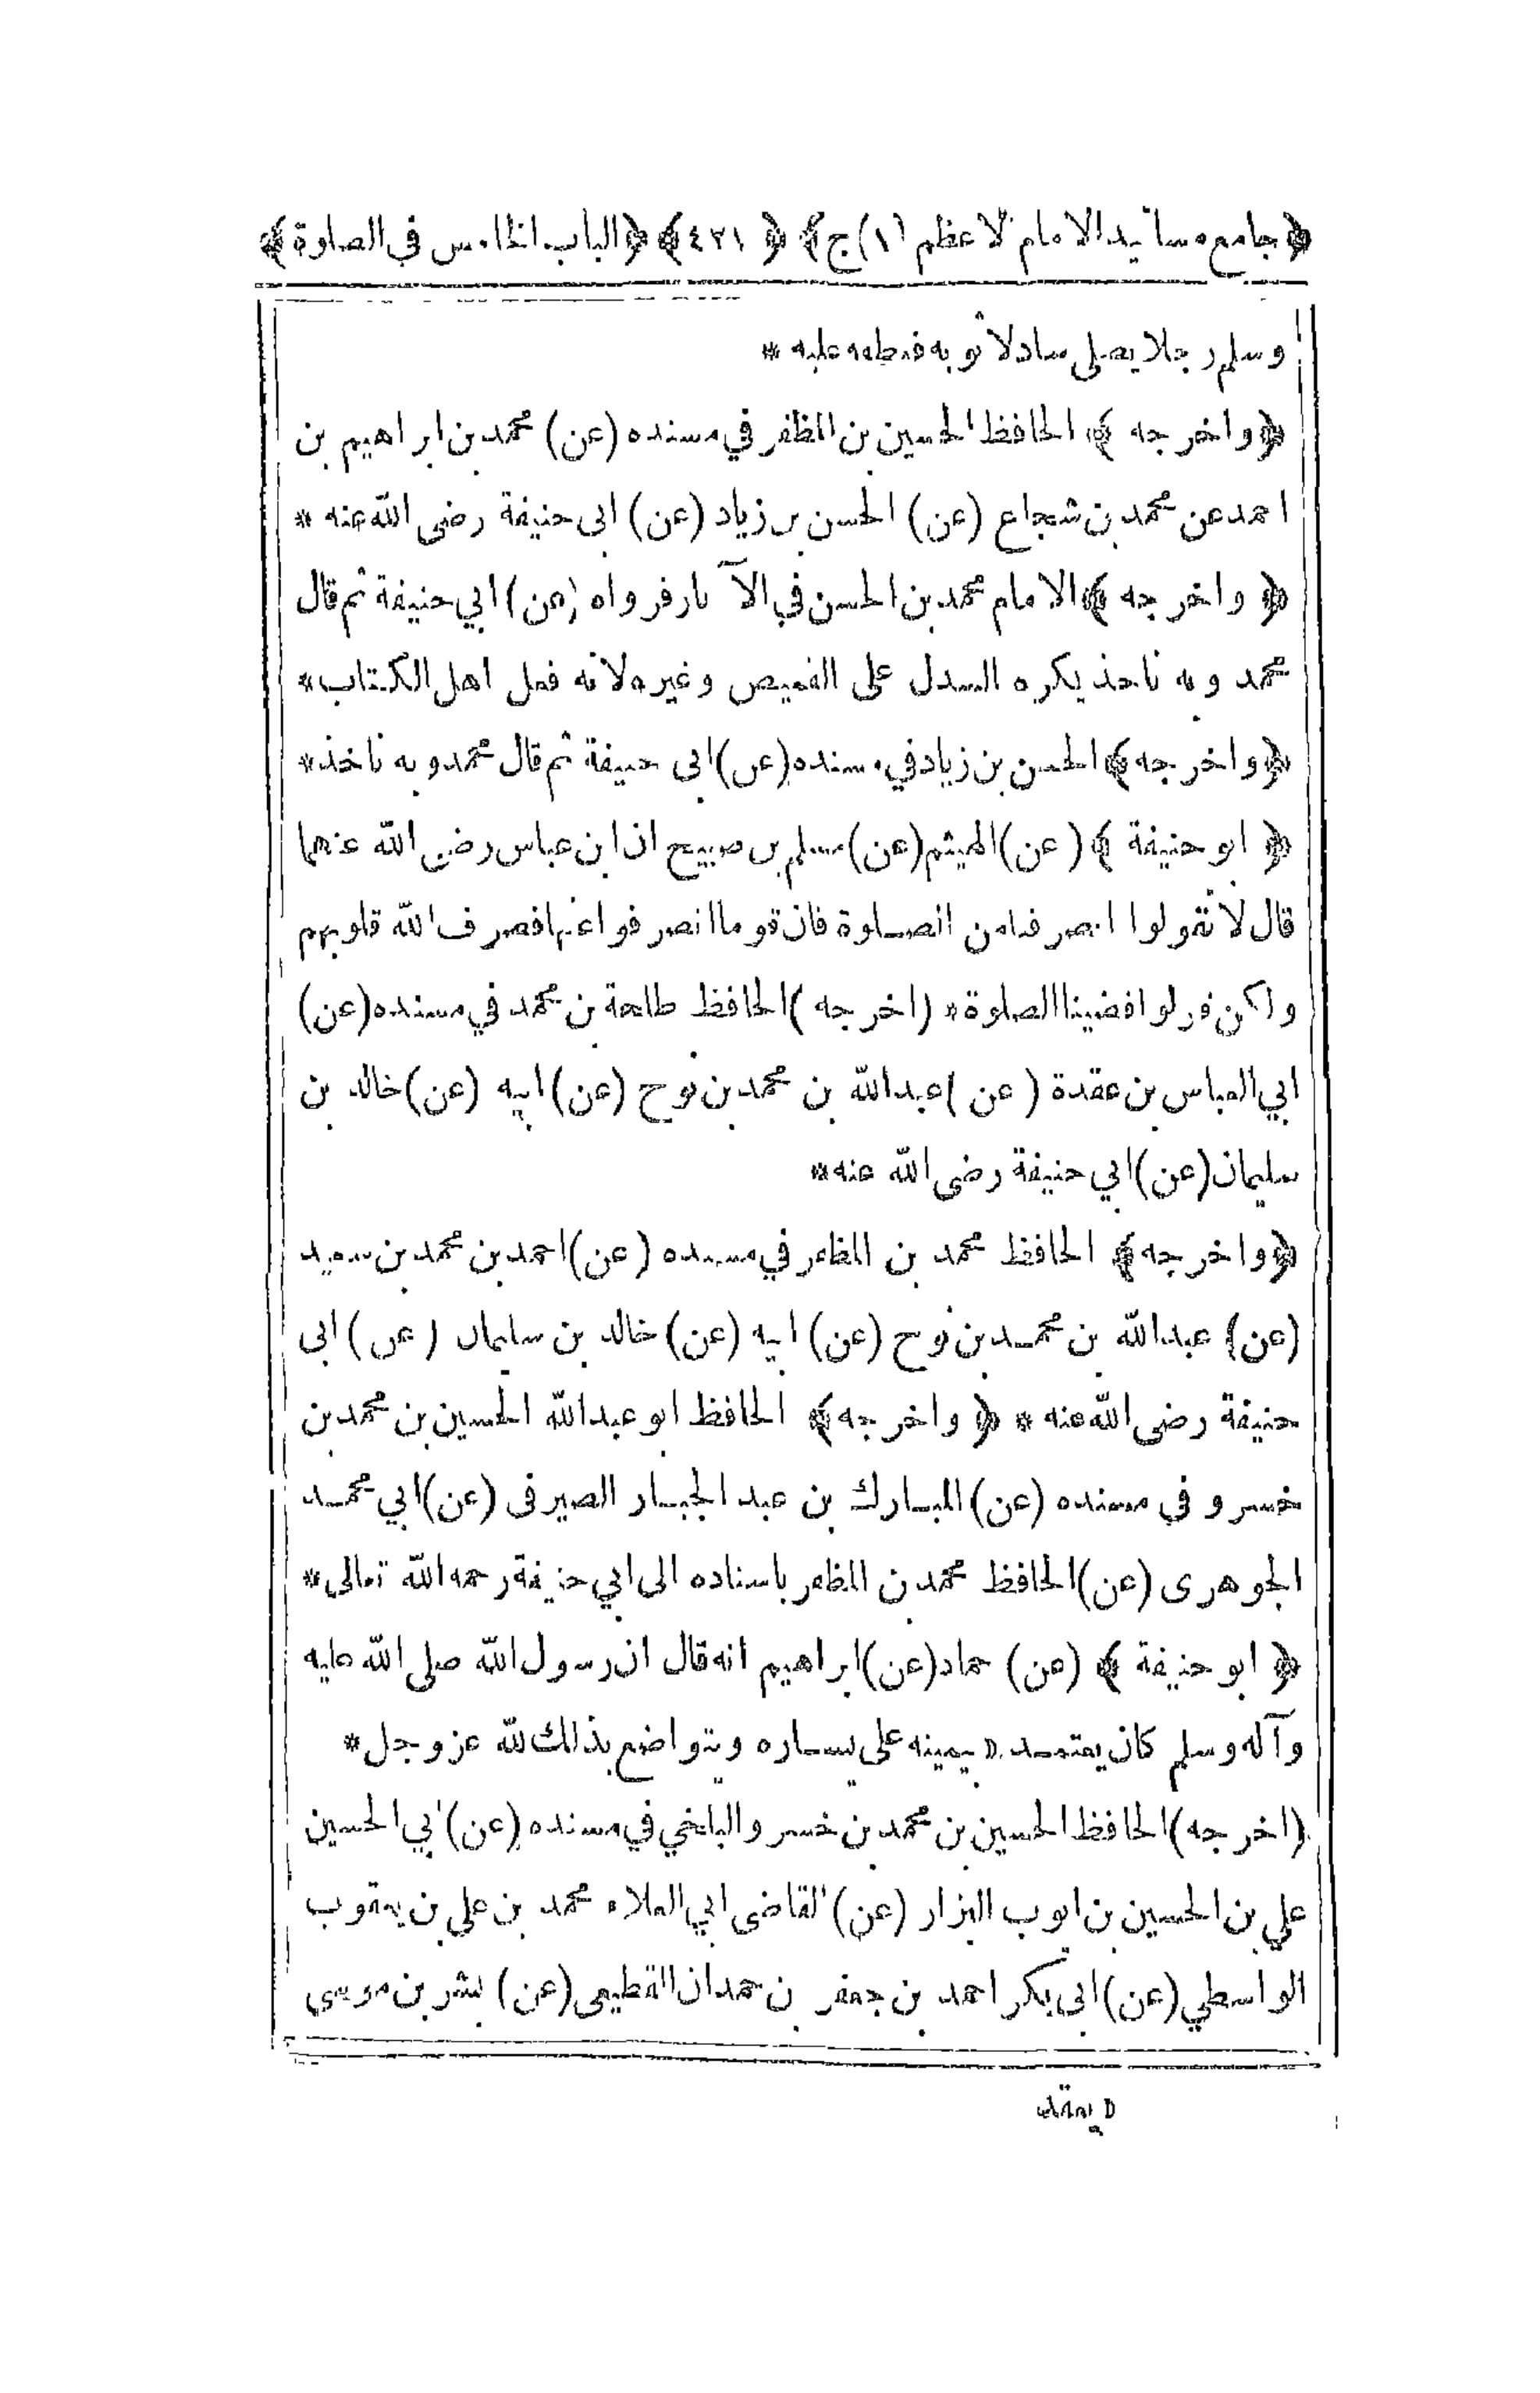 ﴿جامع مسانيد الامام الاعظم (١) ج﴾ ﴿٤٢١﴾ ﴿الباب الخامس في الصلوة﴾
وسلم رجلا يصلى سادلا ثوبه فعطفه عليه *
﴿واخرجه﴾ الحافظ الحسين بن المظفر في مسنده (عن) محمد بن ابراهيم بن
احمد عن محمد بن شجاع (عن) الحسن بن زياد (عن) ابى حنيفة رضى الله عنه *
﴿واخرجه﴾ الامام محمد بن الحسن في الآثار فرواه (عن) ابي حنيفة ثم قال
محمد وبه ناخذ يكره السدل على القميص وغيره لانه فعل اهل الكتاب *
﴿واخرجه﴾ الحسن بن زياد في مسنده (عن) ابى حنيفة ثم قال محمد وبه ناخذ *
﴿ابو حنيفة﴾ (عن) الهيثم (عن) مسلم بن صبيح ان ابن عباس رضى الله عنهما
قال لا تقولوا انصرفنا من الصلوة فان قوما انصرفوا عنها فصرف الله قلوبهم
ولكن قولوا قضينا الصلوة * (اخرجه) الحافظ طلحة بن محمد في مسنده (عن)
ابي العباس بن عقدة (عن) عبد الله بن محمد بن نوح (عن) ابيه (عن) خالد بن
سليمان (عن) ابي حنيفة رضى الله عنه *
﴿واخرجه﴾ الحافظ محمد بن المظفر في مسنده (عن) احمد بن محمد بن سعيد
(عن) عبد الله بن محمد بن نوح (عن) ابيه (عن) خالد بن سليمان (عن) ابى
حنيفة رضى الله عنه * ﴿واخرجه﴾ الحافظ ابو عبد الله الحسين بن محمد بن
خسرو فى مسنده (عن) المبارك بن عبد الجبار الصيرفى (عن) ابي محمد
الجوهرى (عن) الحافظ محمد بن المظفر باسناده الى ابي حنيفة رحمه الله تعالى *
﴿ابو حنيفة﴾ (عن) حماد (عن) ابراهيم انه قال ان رسول الله صلى الله عليه
وآله وسلم كان يعتمد ۵ بيمينه على يساره ويتواضع بذلك لله عز وجل *
(اخرجه) الحافظ الحسين بن محمد بن خسرو البلخي في مسنده (عن) ابي الحسين
علي بن الحسين بن ايوب البزار (عن) القاضى ابي العلاء محمد بن علي بن يعقوب
الواسطي (عن) ابى بكر احمد بن جعفر بن حمدان القطيعى (عن) بشر بن موسى